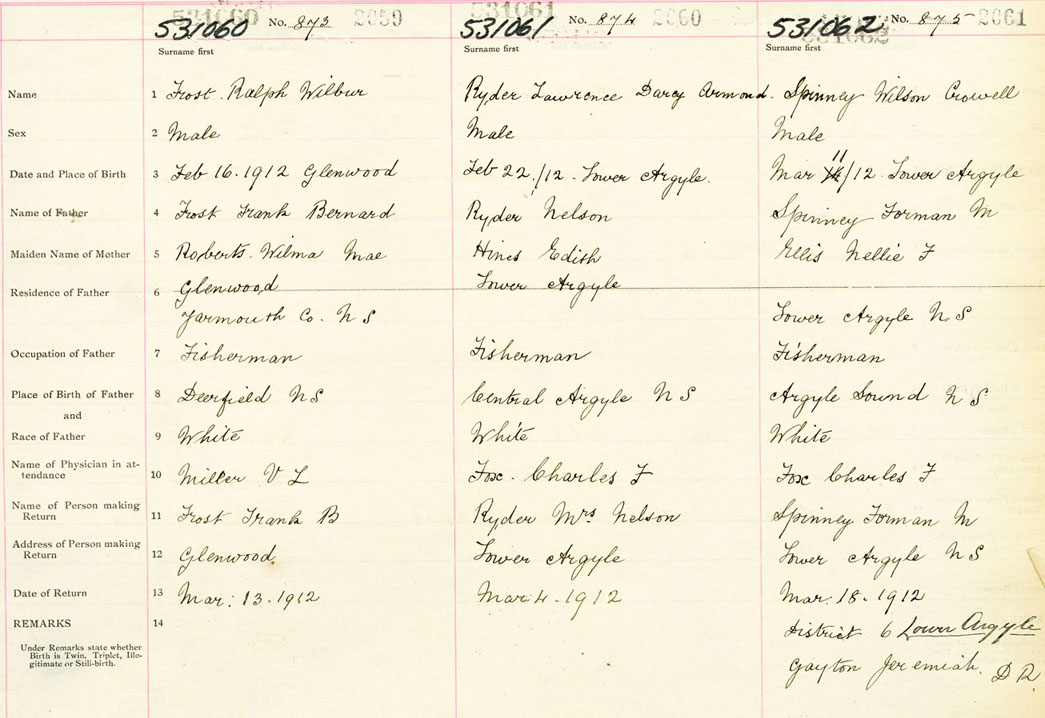 531060 No. 873 2059 531061 No. 874 2060 531062 No. 875 2061
Surname first Surname first Surname first
Name 1 Frost. Ralph Wilbur Ryder Lawrence Darcy Armond. Spinney Wilson Crowell
Sex 2 Male Male Male
Date and Place of Birth 3 Feb 16.1912 Glenwood Feb 22./12. Lower Argyle. Mar 11/12. Lower Argyle
Name of Father 4 Frost Frank Bernard Ryder Nelson Spinney Forman M
Maiden Name of Mother 5 Roberts. Wilma Mae Hines Edith Ellis Nellie F
Residence of Father 6 Glenwood Lower Argyle
Yarmouth Co. N S Lower Argyle N S
Occupation of Father 7 Fisherman Fisherman Fisherman
Place of Birth of Father 8 Deerfield N S Central Argyle N S Argyle Sound N S
and
Race of Father 9 White White White
Name of Physician in at-
tendance 10 Miller V L Fox. Charles F Fox Charles F
Name of Person making
Return 11 Frost Frank B Ryder Mrs Nelson Spinney Forman M
Address of Person making
Return 12 Glenwood. Lower Argyle Lower Argyle N S
Date of Return 13 Mar: 13.1912 Mar: 4. 1912 Mar. 18. 1912
REMARKS 14
District 6 Lower Argyle
Under Remarks state whether
Birth is Twin, Triplet, Ille-
gitimate or Still-birth.
Gayton Jeremiah. D R.